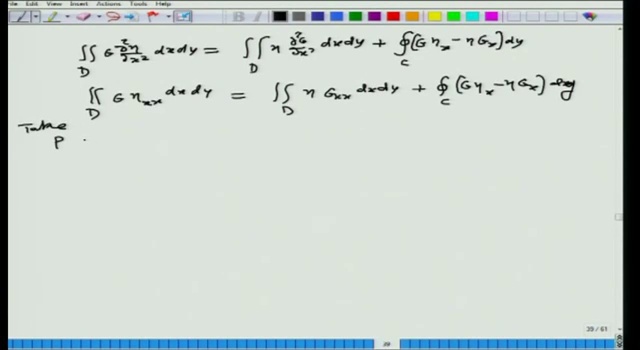 File Edit View Insert Actions Tools Help
∬_D G ∂²η/∂x² dxdy = ∬_D η ∂²G/∂x² dxdy + ∮_C (Gη_x − ηG_x) dy
∬_D G η_xx dxdy = ∬_D η G_xx dxdy + ∮_C (Gη_x − ηG_x) dy
Take
P
39
25 / 61